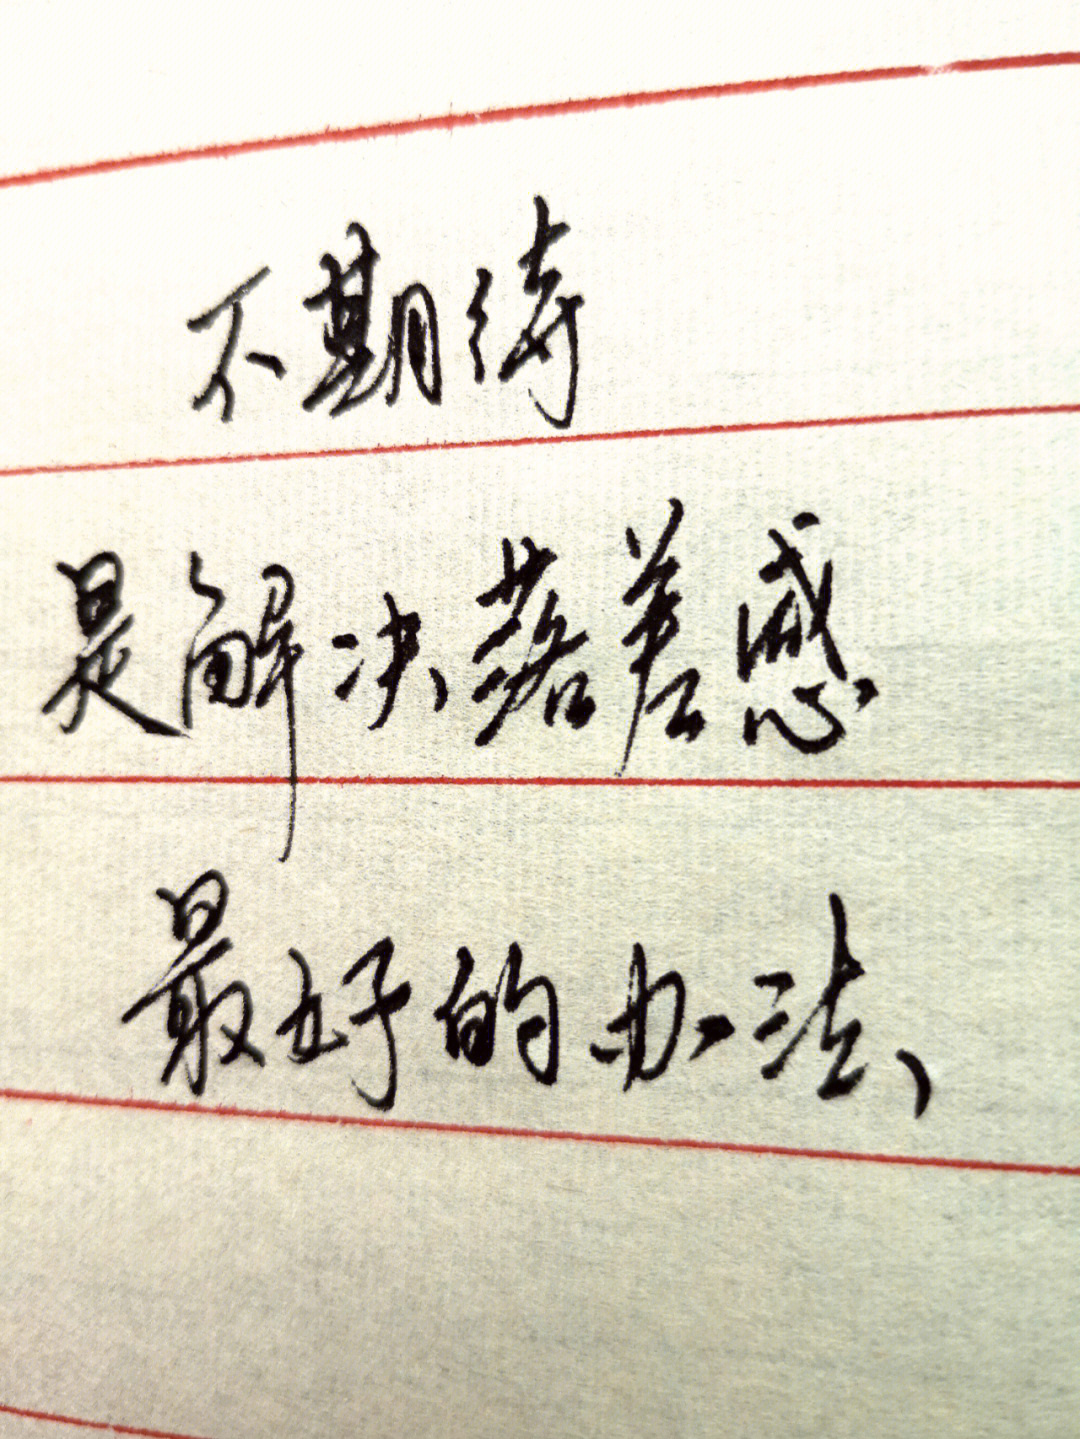 不期待
是解决落差感
最好的办法、